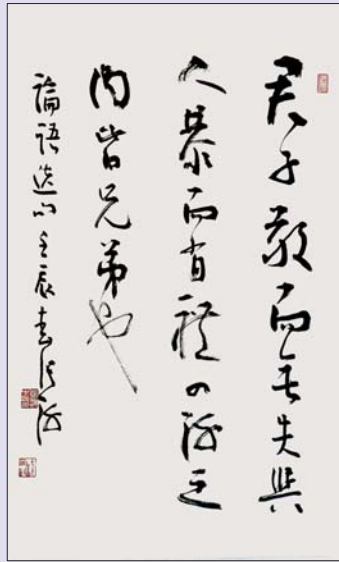 君子敬而无失與
人恭而有禮四海之
内皆兄弟也
論語選句壬辰春張海